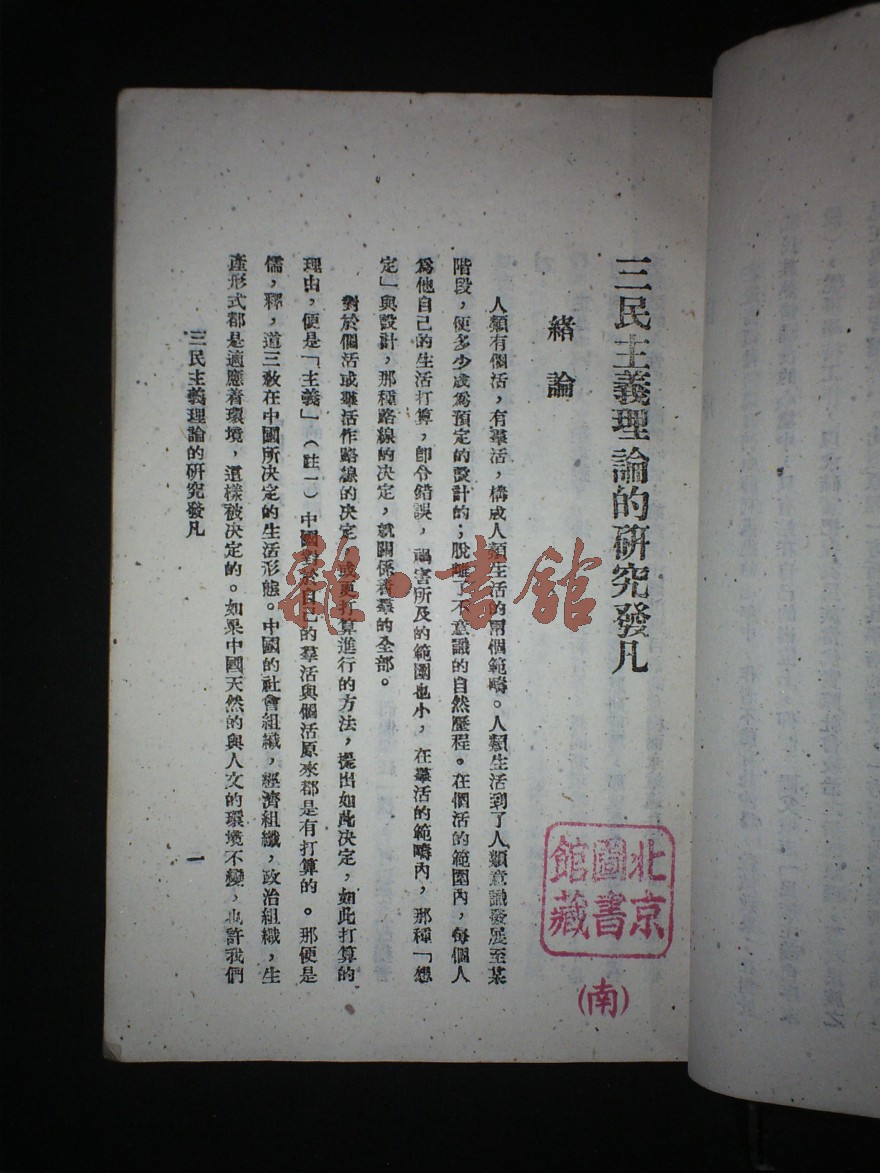 三民主義理論的研究發凡
緒論
人類有個活，有羣活，構成人類生活的兩個範疇。人類生活到了人類意識發展至某
階段，便多少成爲預定的設計的；脫離了不意識的自然歷程。在個活的範圍內，每個人
爲他自己的生活打算，卽令錯誤，禍害所及的範圍也小，在羣活的範疇內，那種「想
定」與設計，那種路線的決定，就關係着羣的全部。
對於個活或羣活作路線的決定，或更打算進行的方法，提出如此決定，如此打算的
理由，便是「主義」（註一）中國對於自己的羣活與個活原來都是有打算的。那便是
儒，釋，道三教在中國所決定的生活形態。中國的社會組織，經濟組織，政治組織，生
產形式都是適應着環境，這樣被決定的。如果中國天然的與人文的環境不變，也許我們
三民主義理論的研究發凡
一
北京
圖書
館藏
(南)
雜·書館